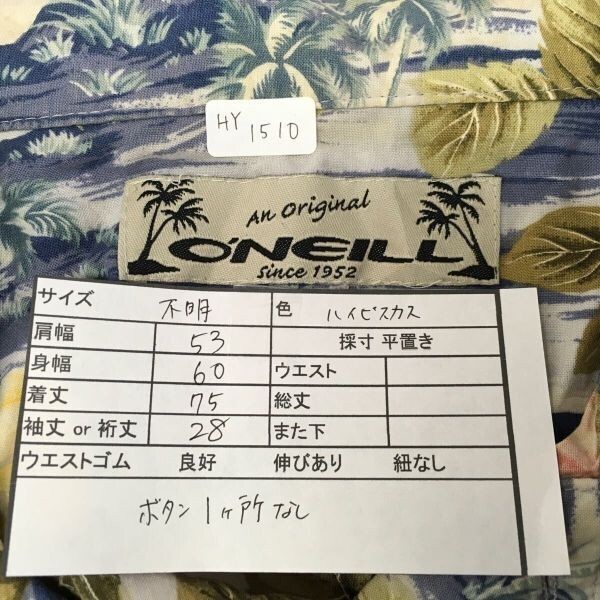 HY 1510
An Original
O'NEILL
Since 1952
サイズ 不明 色 ハイビスカス
肩幅 53 採寸 平置き
身幅 60 ウエスト
着丈 75 総丈
袖丈 or 裄丈 28 また下
ウエストゴム 良好 伸びあり 紐なし
ボタン 1ヶ所 なし